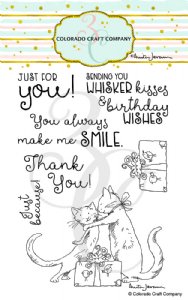 COLORADO CRAFT COMPANY
Anita Jeram
JUST FOR
you!
SENDING YOU
WHISKER kisses
& birthday
WISHES
You always
make me SMILE.
Thank
You!
Just
because!
Anita Jeram
© Colorado Craft Company